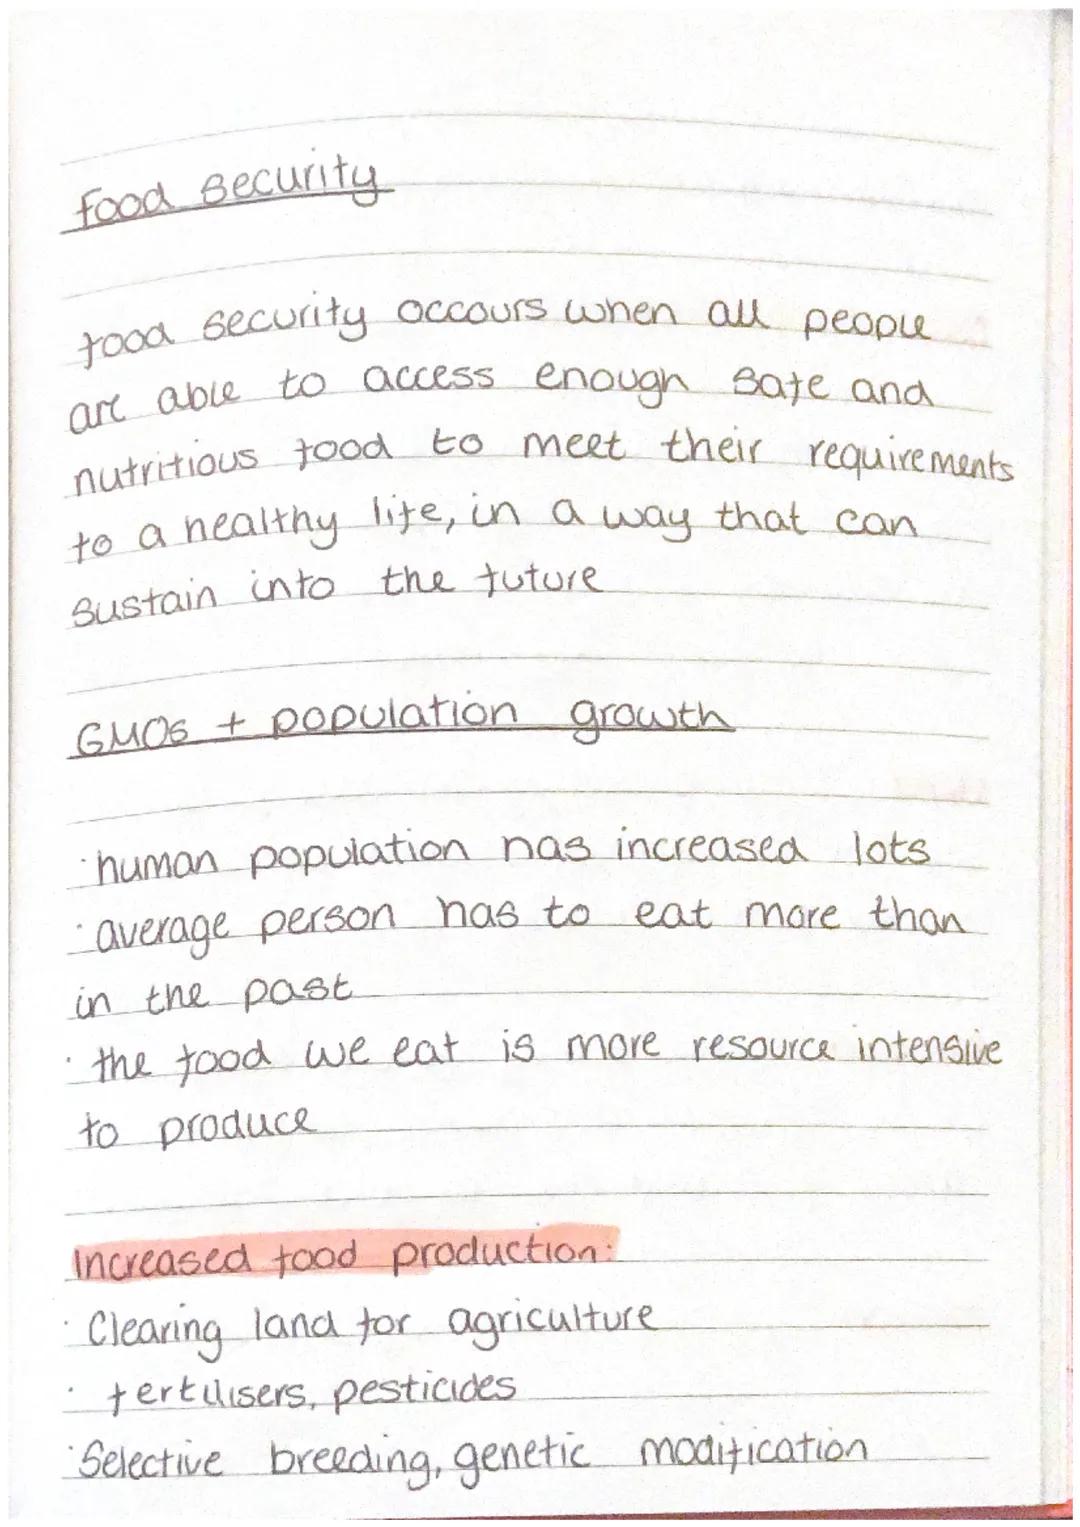 food security
food security occours when all people
are able to access enough safe and
nutritious food to meet their requirements
to a healthy life, in a way that can
sustain into the future
GMOs + population growth
· human population has increased lots
· average person has to eat more than
in the past
· the food we eat is more resource intensive
to produce
Increased food production:
· Clearing land for agriculture
· fertilisers, pesticides
· Selective breeding, genetic modification